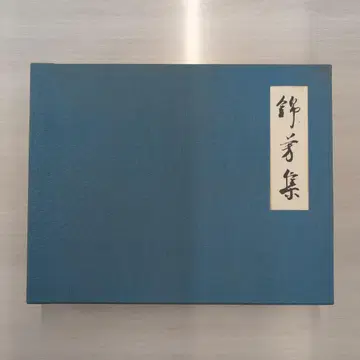 錦芳集